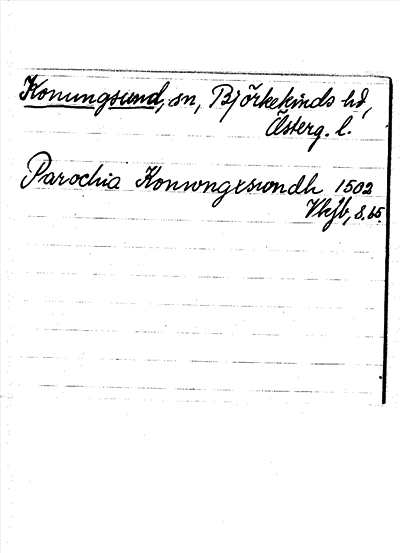 Konungsund, sn, Björkekinds hd,
Österg. l.
Parochia Konwngxswndh 1502
Vkjb, s. 65.